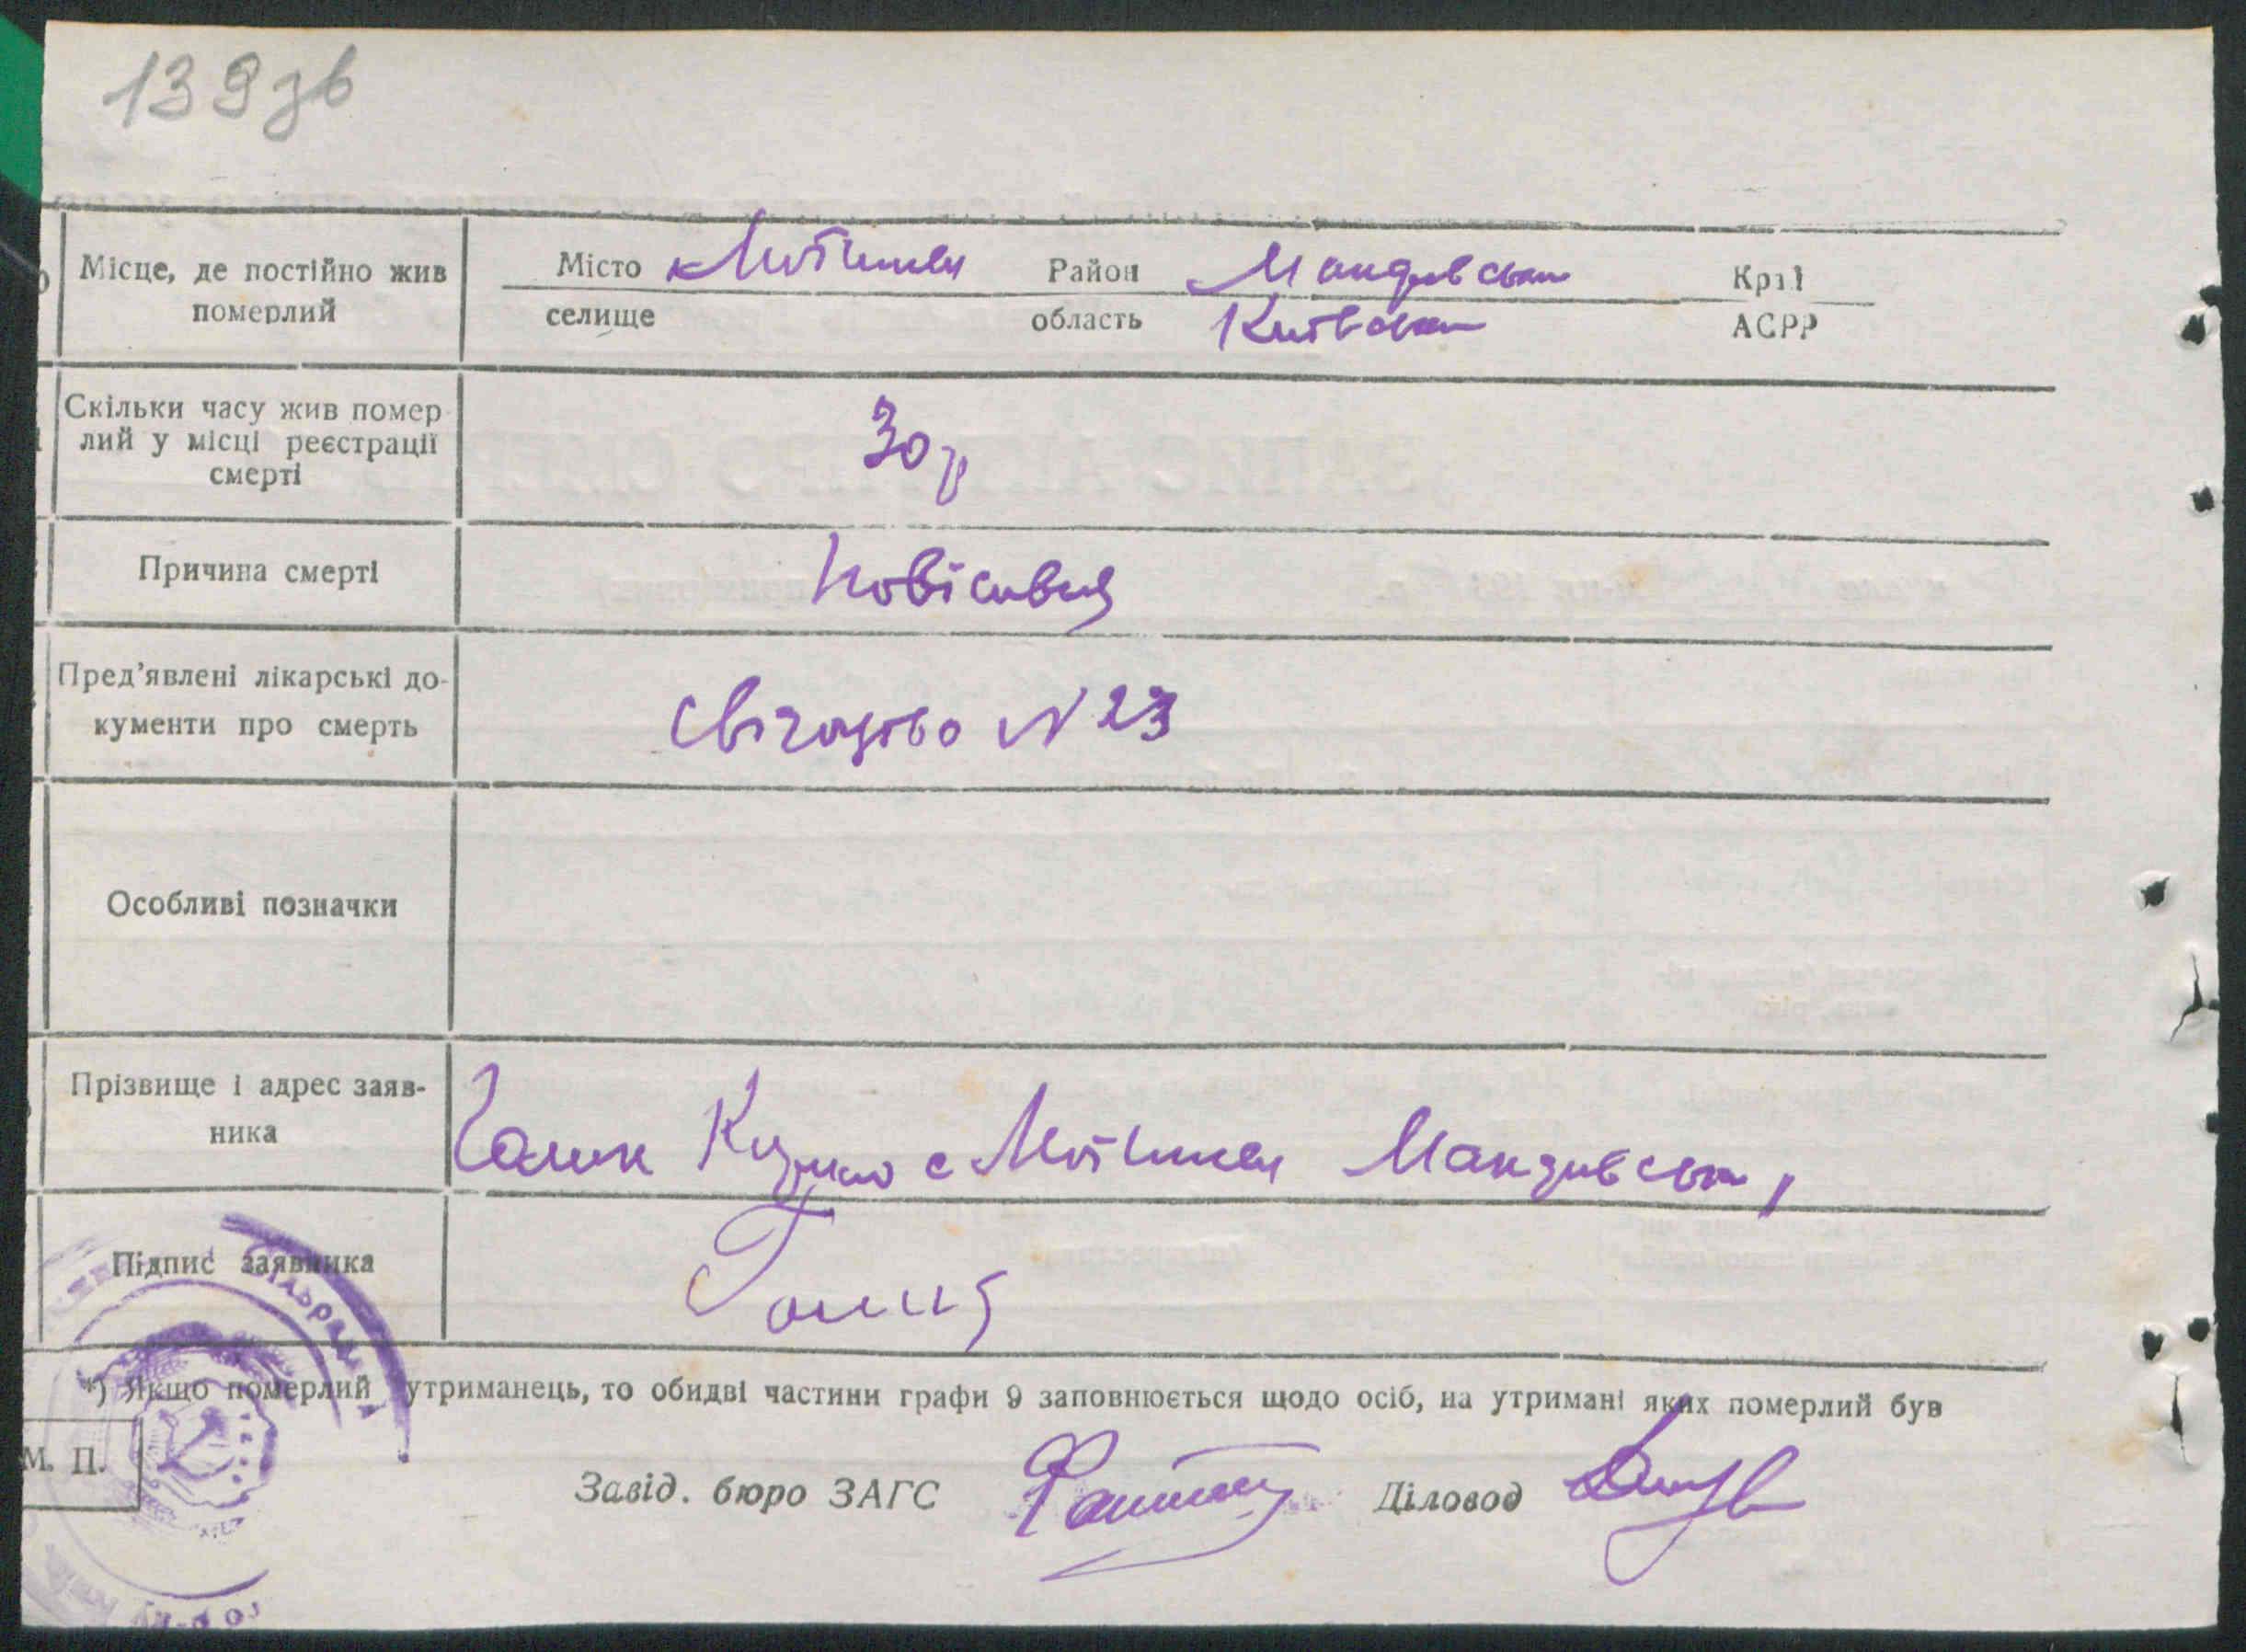 139зв
Місце, де постійно жив
померлий
Місто Мотижин Район Макарівськи Край
селище область Київська АСРР
Скільки часу жив помер-
лий у місці реєстрації
смерті
30 р
Причина смерті
Повісився
Пред'явлені лікарські до-
кументи про смерть
Свідоцтво N 23
Особливі позначки
Прізвище і адрес заяв-
ника
Голик Кузьма с Мотижин
Підпис заявника
Голик
*) Якщо померлий утриманець, то обидві частини графи 9 заповнюється щодо осіб, на утримані яких померлий був
М. П.
Завід. бюро ЗАГС Діловод